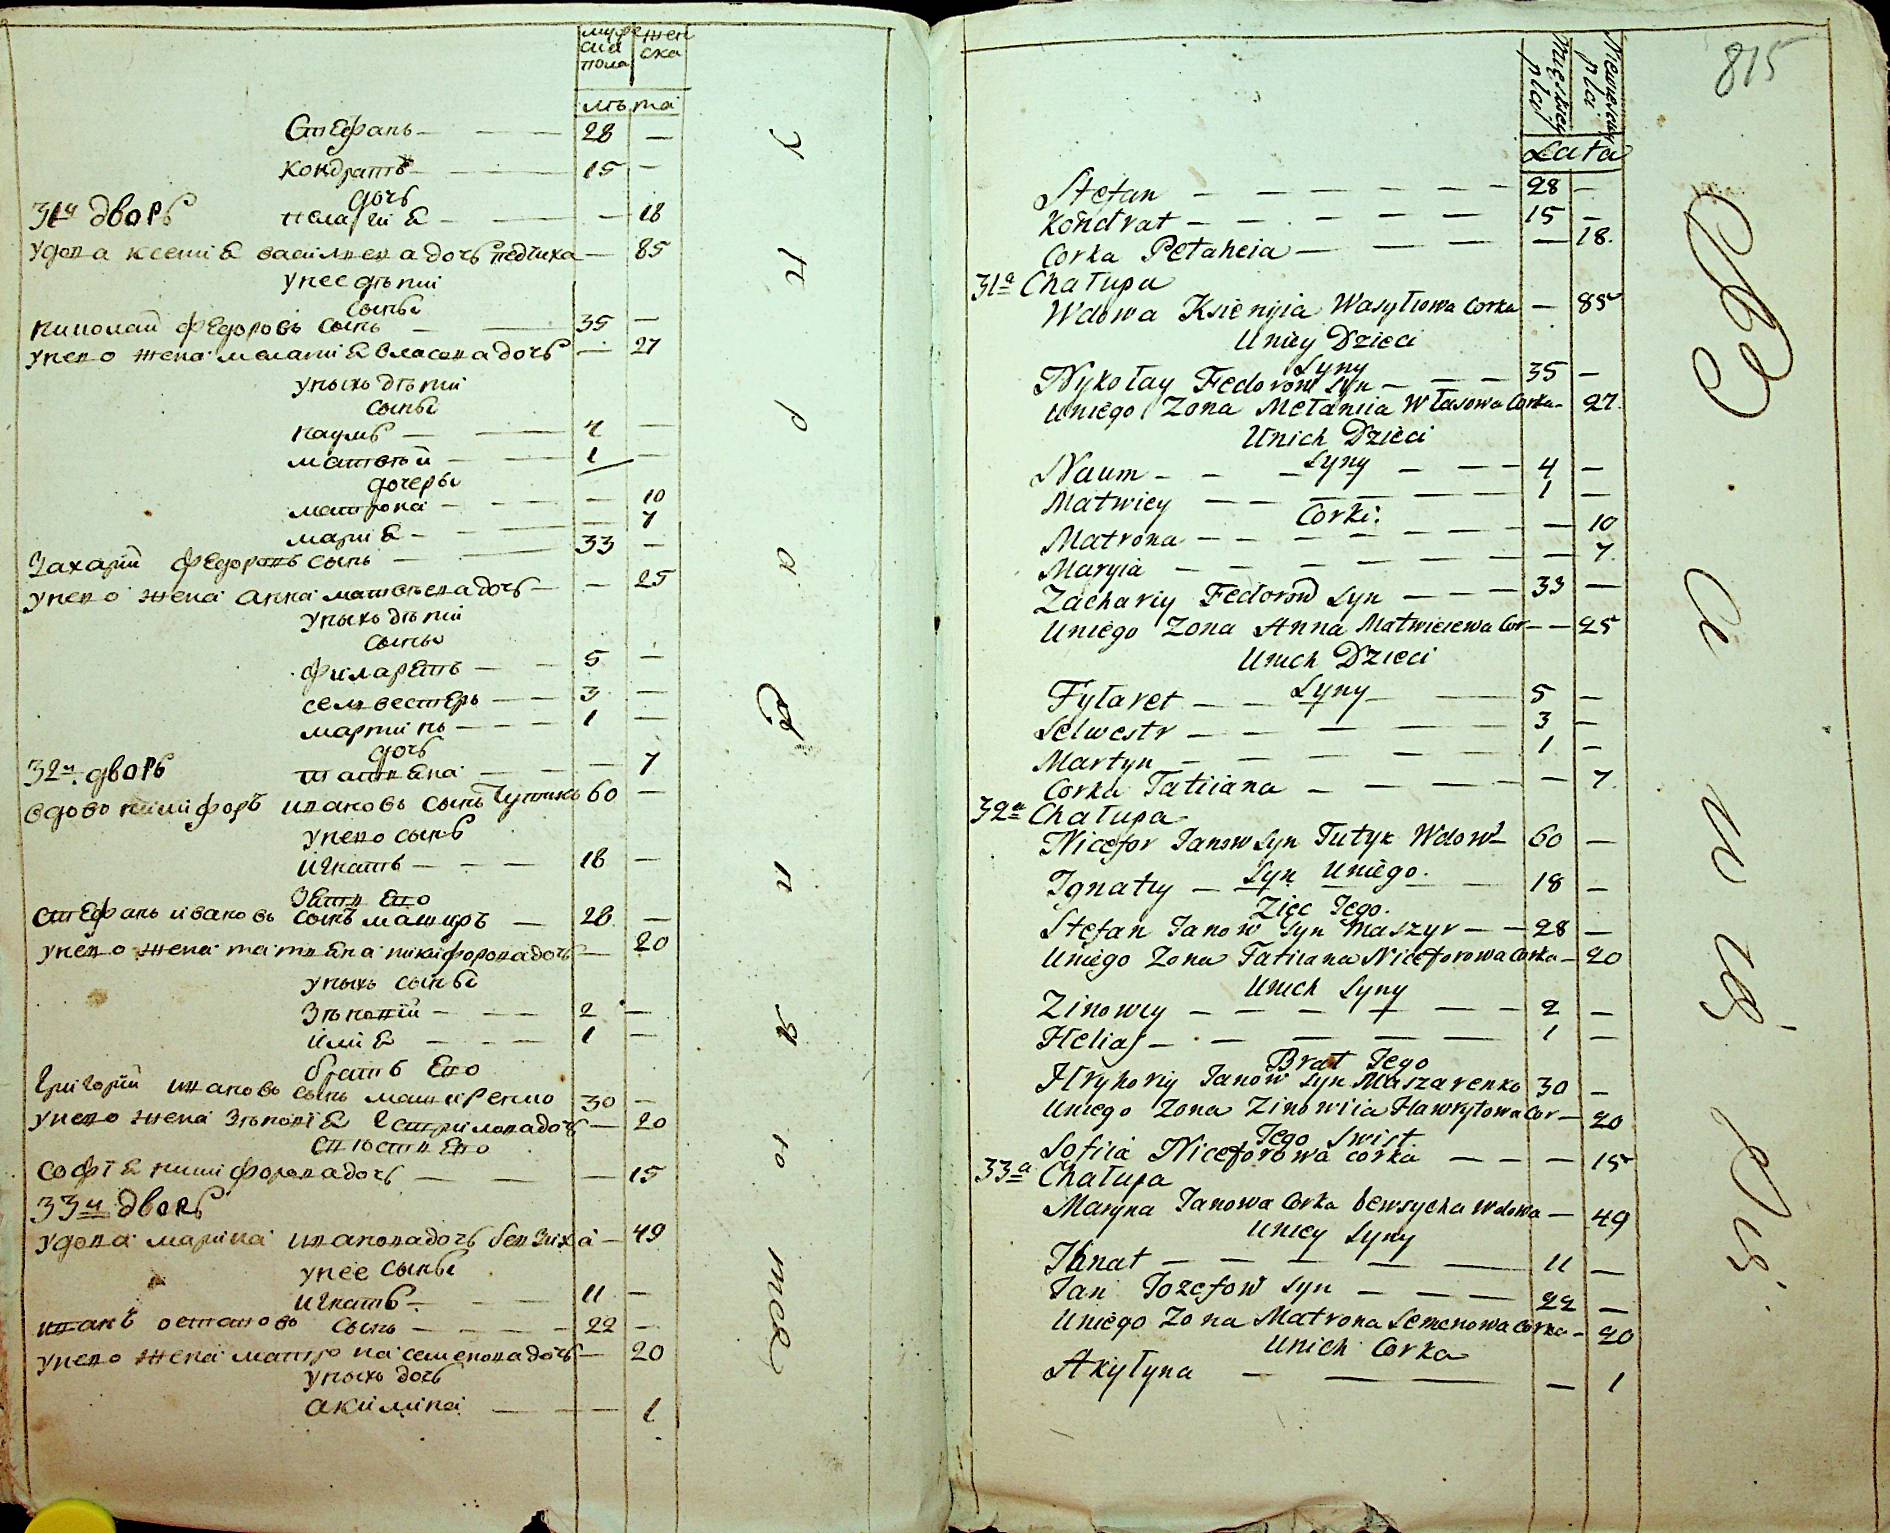 мужеска пола
женска
лѣта
Стефанъ — 28 —
Кондратъ — 15 —
дочь
пелагиѣ — — 18
31й дворъ
удова ксениѣ васильева дочь педчиха — 85
унее дѣти
сыны
николай федоровъ сынъ — 35 —
унево жена меланиѣ власова дочь — 27
унихъ дѣти
сыны
наумъ — 4 —
матвѣй — 1 —
дочеры
матрона — — 10
мариѣ — — 7
Захарий федоровъ сынъ — 33 —
унево жена анна матвѣева дочь — — 25
унихъ дѣти
сыны
филаретъ — 5 —
селвестеръ — 3 —
мартинъ — 1 —
дочь
татиѣна — — 7
32й дворъ
вдово никифоръ ивановъ сынъ 60 —
унево сынъ
игнатъ — 18 —
зять его
стефанъ ивановъ сынъ маширъ — 28 —
унево жена татиѣна никифорова дочь — 20
унихъ сыны
Зѣновий — 2 —
илиѣ — 1 —
братъ его
григорий ивановъ сынъ маширенко 30 —
унево жена Зѣновиѣ гаврилова дочь — 20
софиѣ никифорова дочь — — 15
33й дворъ
удова марина иванова дочь бевзиха — 49
унее сыны
игнатъ — 11 —
иванъ остаповъ сынъ — 22 —
унево жена матрона семенова дочь — 20
унихъ дочь
акилина — — 1
У п р а в и т е л
815
Męskiey płci
Niewieściey płci
Lata
Stefan — 28 —
Kondrat — 15 —
Corka Pełaheia — — 18.
31a Chałupa
Wdowa Ksienyia Wasylowa Corka — 85
Uniey Dzieci
Syny
Nykołay Fedorow Syn — 35 —
Uniego Zona Mełaniia Własowa Corka — 27.
Unich Dzieci
Syny
Naum — 4 —
Matwiey — 1 —
Corki.
Matrona — — 10
Maryia — — 7.
Zachariy Fedorow Syn — 33 —
Uniego Zona Anna Matwieiewa Cor — — 25
Unich Dzieci
Syny
Fyłaret — 5 —
Selwestr — 3 —
Martyn — 1 —
Corka Tatiiana — — 7.
32a Chałupa
Nicefor Janow Syn Tutyk Wdow — 60 —
Syn Uniego.
Ignatiy — 18 —
Zięc Jego.
Stefan Janow Syn Maszyr — — 28 —
Uniego Zona Tatiiana Niceforowa Corka — 20
Unich Syny
Zinowiy — 2 —
Helias — 1 —
Brat Jego
Hryhoriy Janow Syn Maszarenko 30 —
Uniego Zona Zinowiia Hawryłowa Cor — 20
Jego Swist
Sofiia Niceforowa corka — — 15
33a Chałupa
Maryna Janowa Corka bewsycha Wdowa — 49
Uniey Syny
Ihnat — 11 —
Jan Jozefow Syn — 22 —
Uniego Zona Matrona Semenowa Corka — 20
Unich Corka
Akyłyna — — 1